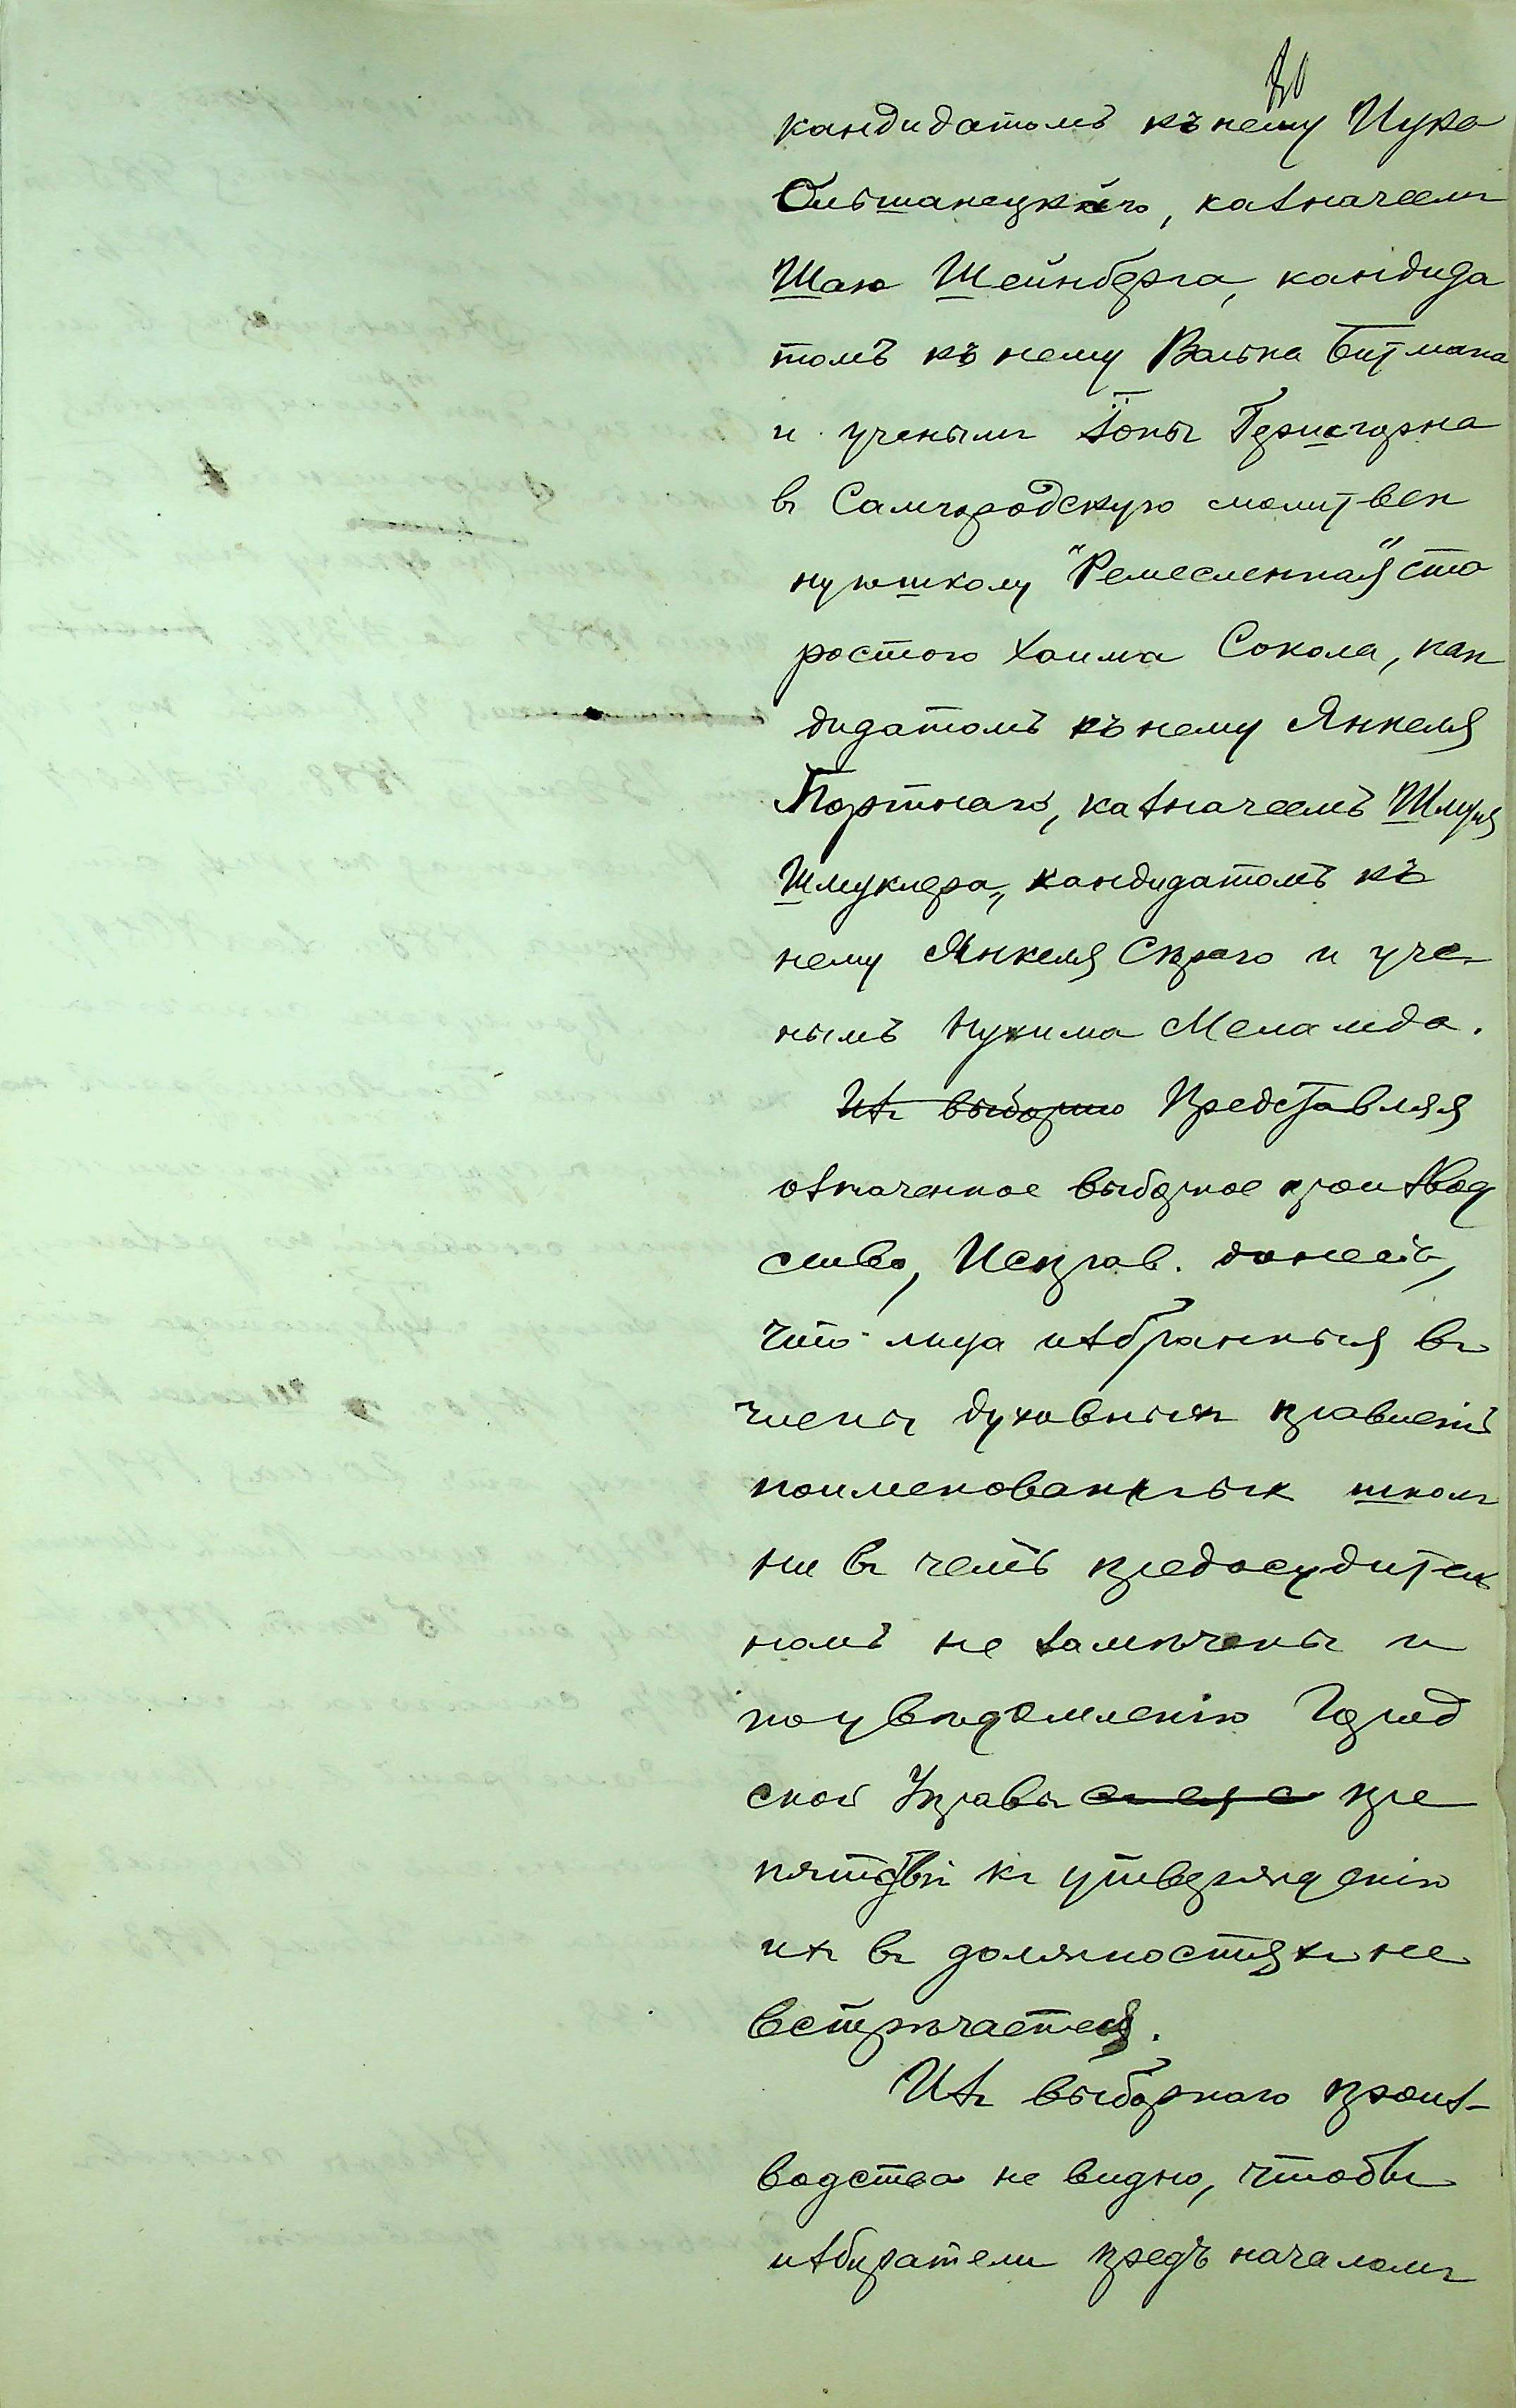 кандидатомъ къ нему Нуха
Ольшанецкаго, казначеемъ
Шаю Шейнберга, кандида
томъ къ нему Волька Битмана
и ученымъ Іоны Гершгорна
въ Самгородскую молитвен
ную школу "Ремесленная" ста
ростою Хаима Сокола, кан
дидатомъ къ нему Янкеля
Портнаго, казначеемъ Шмуля
Шмуклера, кандидатомъ къ
нему Янкеля Скраго и уче-
нымъ Нухима Меламеда.
Изъ выборно Представляя
означенное выборное производ
ство, Исправ. донесъ,
что лица избранныя въ
члены духовныхъ правленій
поименованныхъ школъ
ни въ чемъ предосудитель
номъ не замѣчены и
по увѣдомленію Город
ской Управы пре
пятствій къ утвержденію
ихъ въ должностяхъ не
встрѣчается.
Изъ выборнаго произ-
водства не видно, чтобы
избиратели предъ началомъ